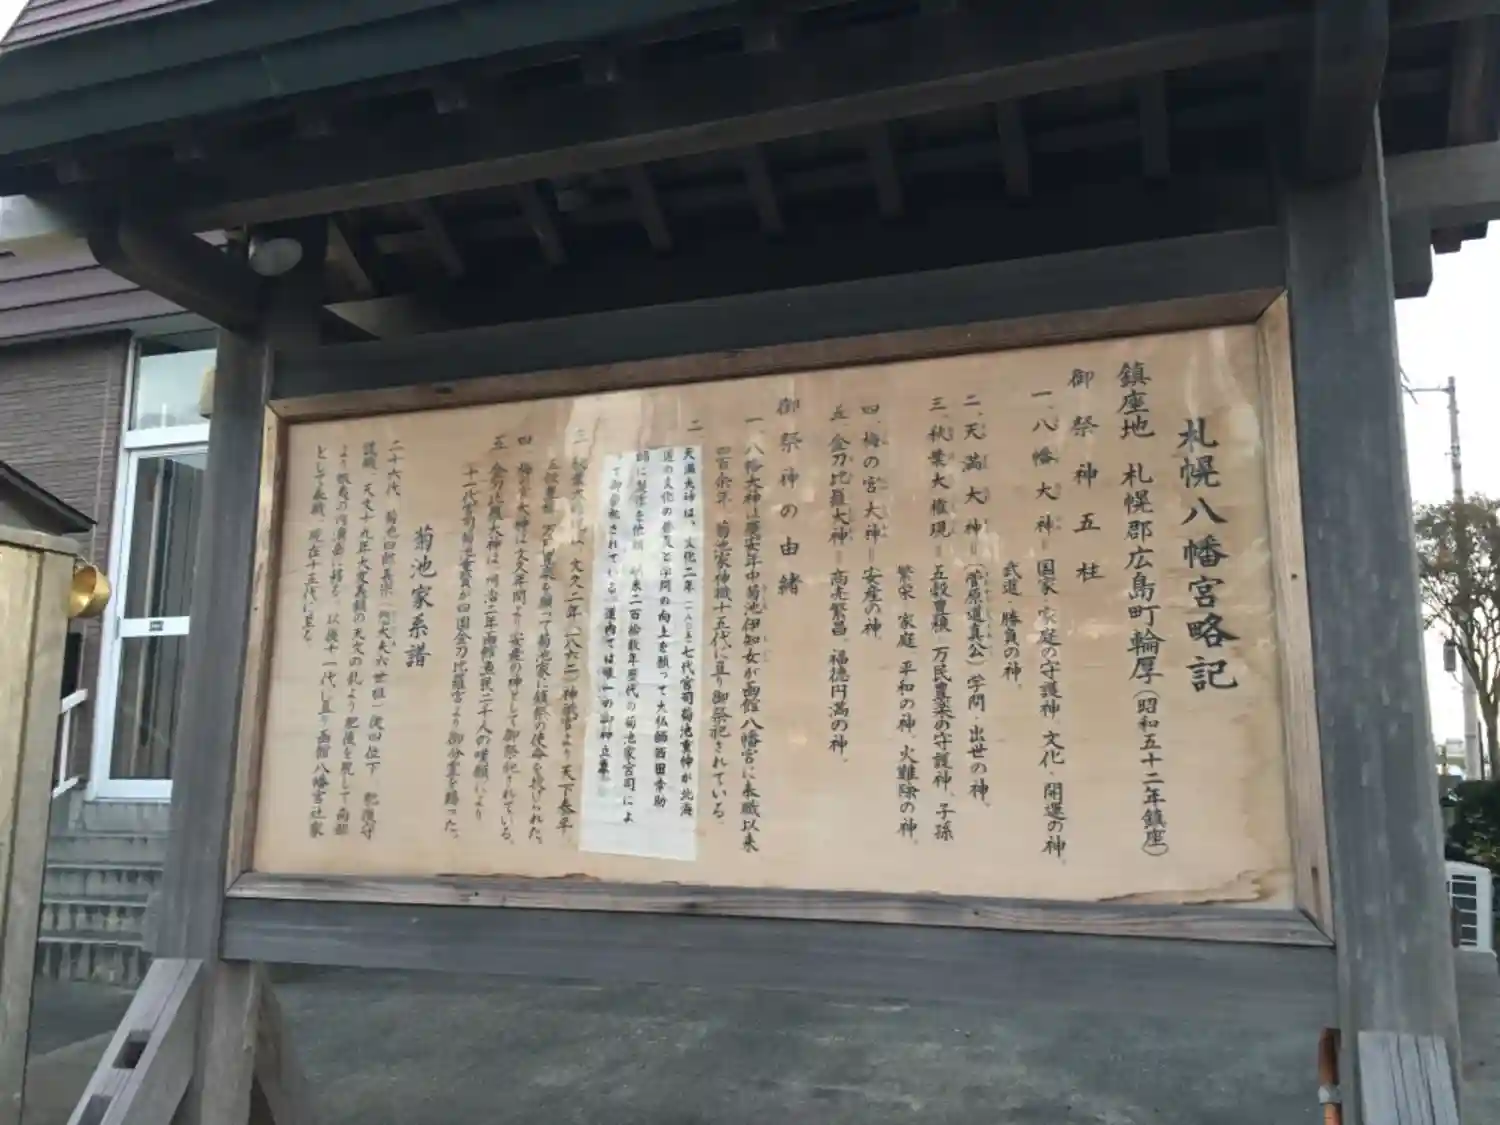 札幌八幡宮略記
鎮座地 札幌郡広島町輪厚(昭和五十二年鎮座)
御祭神五柱
一、八幡大神=国家・家庭の守護神、文化・開運の神、
武道・勝負の神、
二、天満大神=(菅原道真公)学問・出世の神、
三、秋葉大権現=五穀豊穣 万民豊楽の守護神、子孫
繁栄 家庭 平和の神、火難除の神、
四、梅の宮大神=安産の神、
五、金刀比羅大神=商売繁昌 福徳円満の神、
御祭神の由緒
一、八幡大神は慶安年中菊池伊知女が函館八幡宮に奉職以来
四百余年、菊池家神職十五代に亘り御祭祀されている。
二
天満大神は、文化二年 七代宮司菊池重仲が北海
道の文化の普及と学問の向上を願って大仏師西田幸助
以来二百拾数年歴代の菊池家宮司によ
って御祭祀されている。道内では唯一の御神立像
三 文久二年(一八六二)神祇官より天下泰平、
五穀豊穣 万民豊楽を願って菊池家に鎮祭の使命を授けられた。
四 梅の宮大神は文久年間より安産の神として御祭祀されている。
五 金刀比羅大神は明治二年函館漁民二十人の嘆願により
十一代宮司菊池重賢が四国金刀比羅宮より御分霊を賜った。
菊池家系譜
二十六代 菊池 従四位下 肥後守
武職、天文十九年大友義鎮の天文の乱より肥後を脱して南部
より 以後十一代に亘り函館八幡宮社家
として奉職、現在十五代に至る。